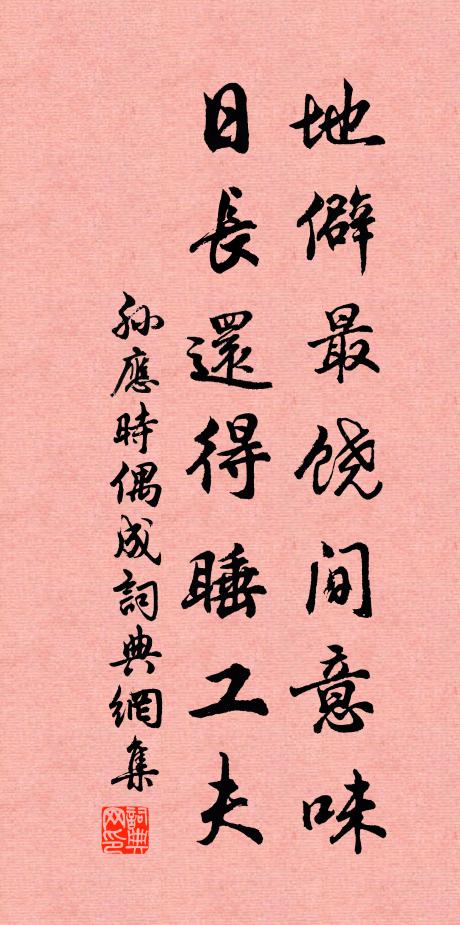 地僻最饶间意味
日長還得睡工夫
孙應時偶成詞典網集
詞典网印